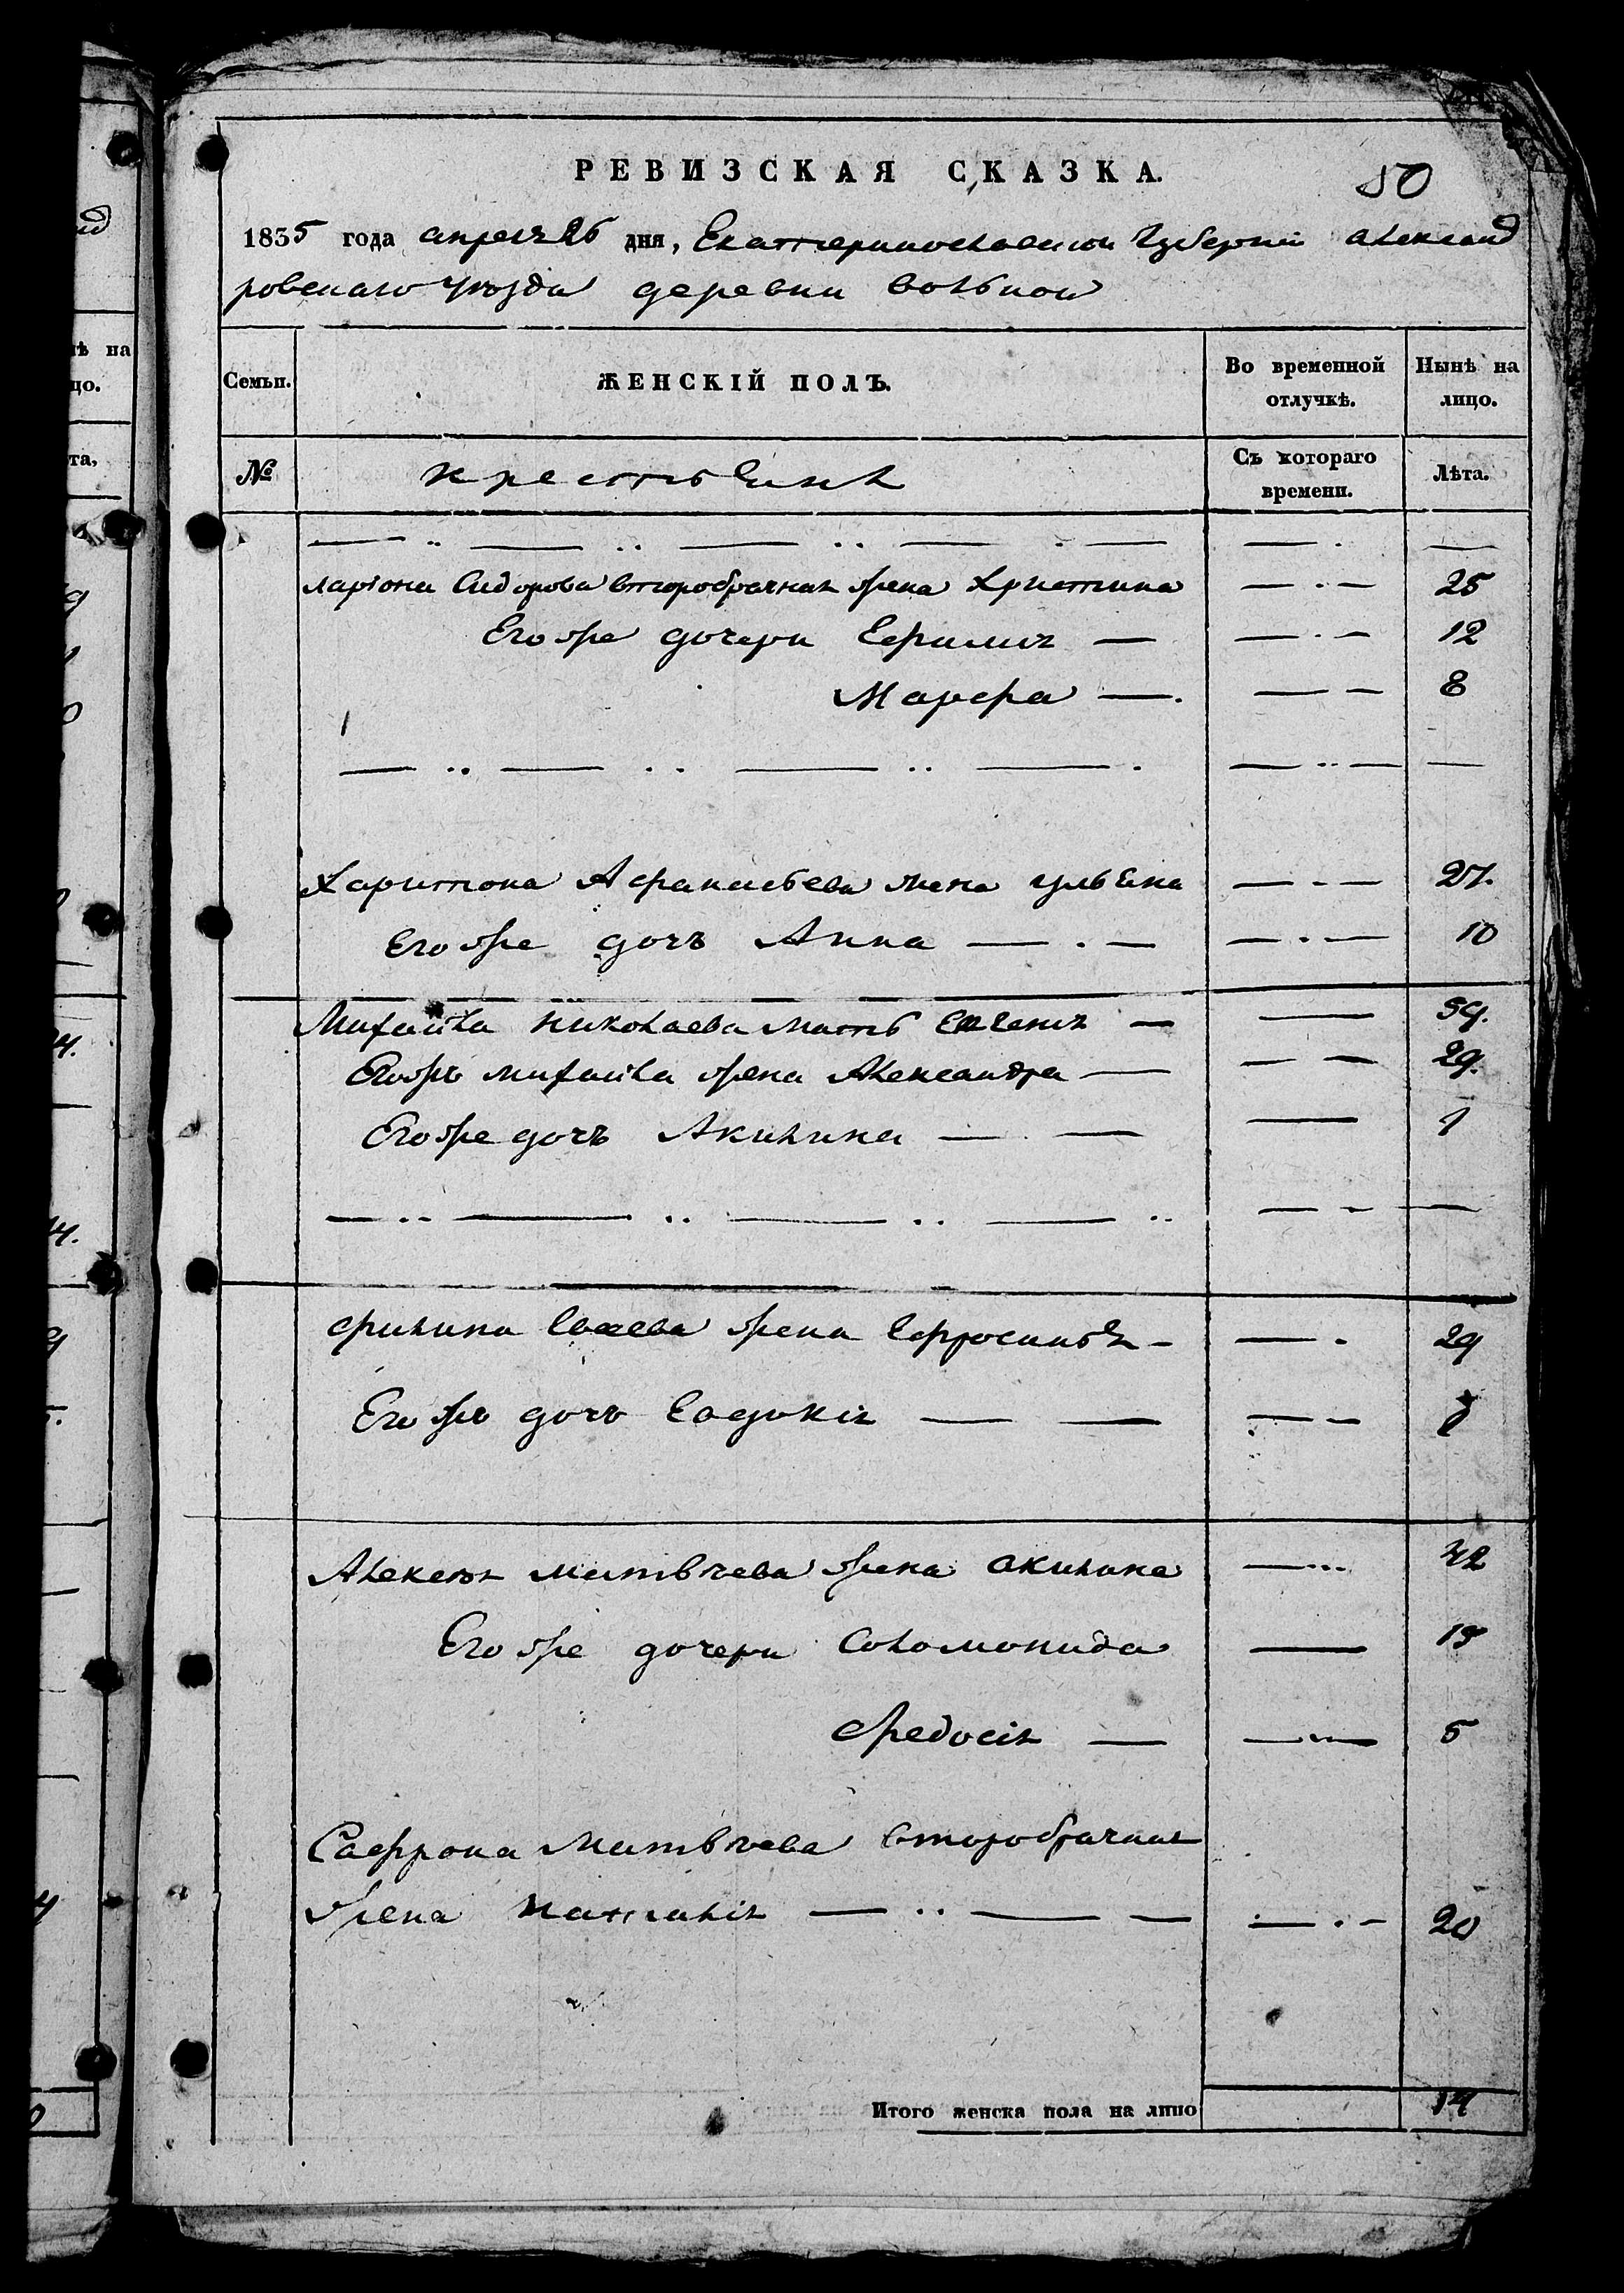 РЕВИЗСКАЯ СКАЗКА.
50
1835 года апреля 26 дня, Екатеринославской Губернии Александ
ровскаго уѣзда деревни вольной
Семьи.
ЖЕНСКІЙ ПОЛЪ.
Во временной отлучкѣ.
Нынѣ на лицо.
№
крестьяня
Съ котораго времени.
Лѣта.
Ларіона Сидорова второбрачная жена Христина 25
Его же дочери Ефимия 12
Марфа 8
Харитона Афанасьева жена ульяна 27.
Его же дочь Анна 10
Михайла Николаева мать 59.
Егожъ михайла жена Александра 29.
Его же дочъ Акилина 1
Филипа жена Ефросинья 29
Его жъ дочь Евдокія
Алексея матвѣева жена акилина 42
Его же дочери Соломонида 15
Федосія 5
Сафрона Матвѣева второбрачная
жена Наталія 20
Итого женска пола на лицо 14